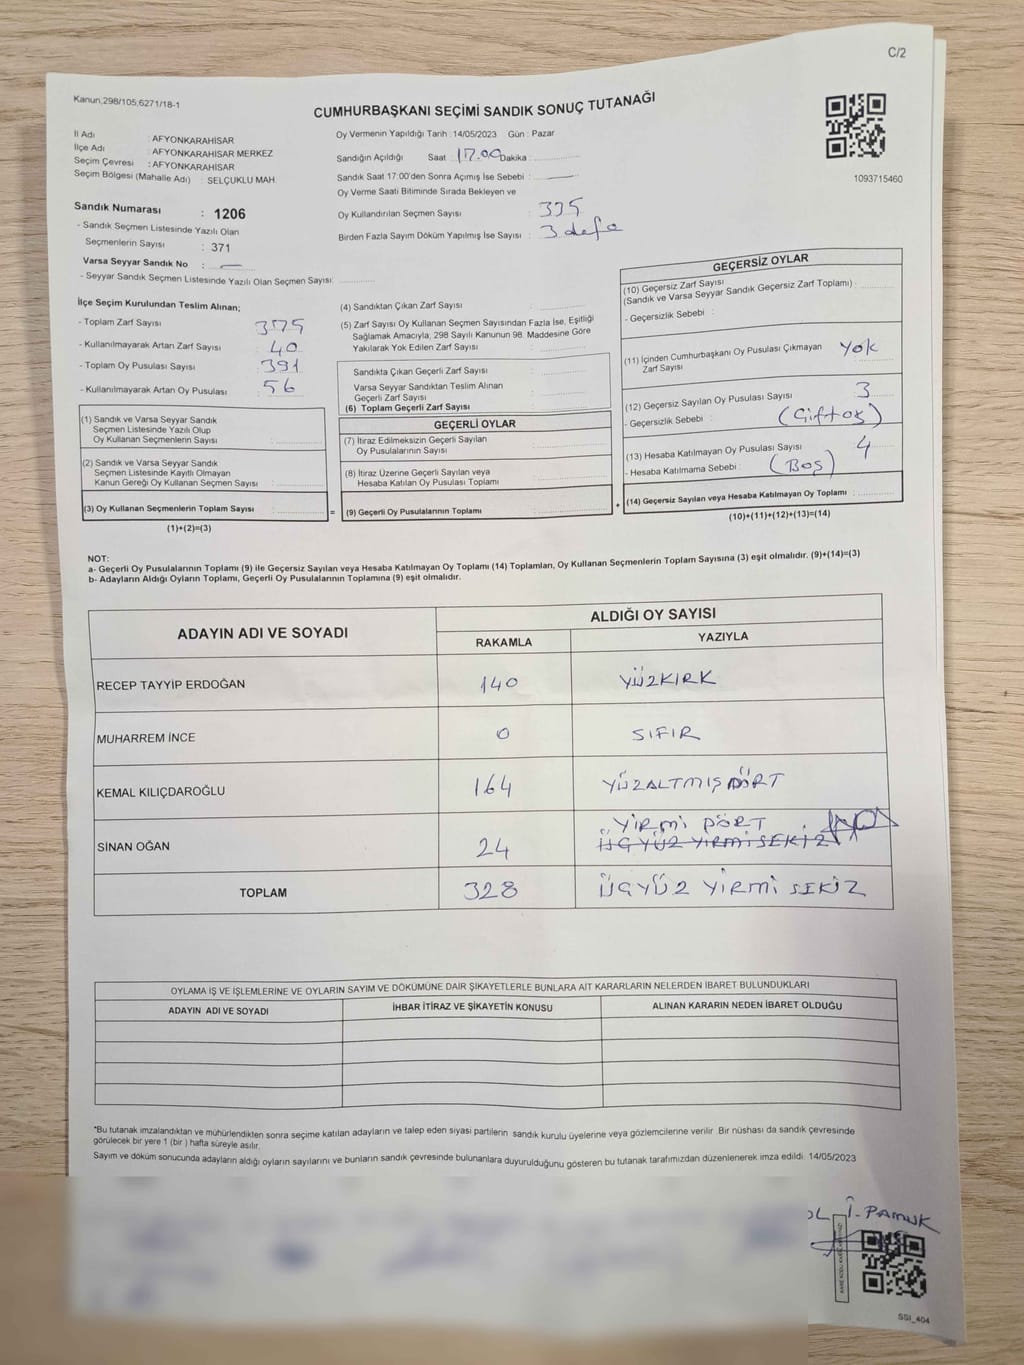 C/2
Kanun,298/105,6271/18-1
CUMHURBAŞKANI SEÇİMİ SANDIK SONUÇ TUTANAĞI
İl Adı : AFYONKARAHİSAR
İlçe Adı : AFYONKARAHİSAR MERKEZ
Seçim Çevresi : AFYONKARAHİSAR
Seçim Bölgesi (Mahalle Adı) : SELÇUKLU MAH.
Sandık Numarası : 1206
- Sandık Seçmen Listesinde Yazılı Olan
Seçmenlerin Sayısı : 371
Varsa Seyyar Sandık No : —
- Seyyar Sandık Seçmen Listesinde Yazılı Olan Seçmen Sayısı:
Oy Vermenin Yapıldığı Tarih : 14/05/2023 Gün : Pazar
Sandığın Açıldığı Saat : 17.00 Dakika :
Sandık Saat 17:00'den Sonra Açımış İse Sebebi : —
Oy Verme Saati Bitiminde Sırada Bekleyen ve
Oy Kullandırılan Seçmen Sayısı : 335
Birden Fazla Sayım Döküm Yapılmış İse Sayısı : 3 defa
1093715460
İlçe Seçim Kurulundan Teslim Alınan;
- Toplam Zarf Sayısı 375
- Kullanılmayarak Artan Zarf Sayısı : 40
- Toplam Oy Pusulası Sayısı : 391
- Kullanılmayarak Artan Oy Pusulası : 56
(1) Sandık ve Varsa Seyyar Sandık
Seçmen Listesinde Yazılı Olup
Oy Kullanan Seçmenlerin Sayısı :
(2) Sandık ve Varsa Seyyar Sandık
Seçmen Listesinde Kayıtlı Olmayan
Kanun Gereği Oy Kullanan Seçmen Sayısı :
(3) Oy Kullanan Seçmenlerin Toplam Sayısı :
(1)+(2)=(3)
=
(4) Sandıktan Çıkan Zarf Sayısı :
(5) Zarf Sayısı Oy Kullanan Seçmen Sayısından Fazla İse, Eşitliği
Sağlamak Amacıyla; 298 Sayılı Kanunun 98. Maddesine Göre
Yakılarak Yok Edilen Zarf Sayısı :
Sandıkta Çıkan Geçerli Zarf Sayısı :
Varsa Seyyar Sandıktan Teslim Alınan
Geçerli Zarf Sayısı :
(6) Toplam Geçerli Zarf Sayısı :
GEÇERLİ OYLAR
(7) İtiraz Edilmeksizin Geçerli Sayılan
Oy Pusulalarının Sayısı :
(8) İtiraz Üzerine Geçerli Sayılan veya
Hesaba Katılan Oy Pusulası Toplamı :
(9) Geçerli Oy Pusulalarının Toplamı :
+
GEÇERSİZ OYLAR
(10) Geçersiz Zarf Sayısı
(Sandık ve Varsa Seyyar Sandık Geçersiz Zarf Toplamı) :
- Geçersizlik Sebebi :
(11) İçinden Cumhurbaşkanı Oy Pusulası Çıkmayan
Zarf Sayısı : Yok
(12) Geçersiz Sayılan Oy Pusulası Sayısı : 3
- Geçersizlik Sebebi : (Çift oy)
(13) Hesaba Katılmayan Oy Pusulası Sayısı : 4
- Hesaba Katılmama Sebebi : (Boş)
(14) Geçersiz Sayılan veya Hesaba Katılmayan Oy Toplamı :
(10)+(11)+(12)+(13)=(14)
NOT:
a- Geçerli Oy Pusulalarının Toplamı (9) ile Geçersiz Sayılan veya Hesaba Katılmayan Oy Toplamı (14) Toplamları, Oy Kullanan Seçmenlerin Toplam Sayısına (3) eşit olmalıdır. (9)+(14)=(3)
b- Adayların Aldığı Oyların Toplamı, Geçerli Oy Pusulalarının Toplamına (9) eşit olmalıdır.
ADAYIN ADI VE SOYADI
ALDIĞI OY SAYISI
RAKAMLA YAZIYLA
RECEP TAYYİP ERDOĞAN 140 YÜZKIRK
MUHARREM İNCE 0 SIFIR
KEMAL KILIÇDAROĞLU 164 YÜZALTMIŞDÖRT
YİRMİ DÖRT
SİNAN OĞAN 24 ÜÇYÜZ YİRMİSEKİZ
TOPLAM 328 ÜÇYÜZ YİRMİ SEKİZ
OYLAMA İŞ VE İŞLEMLERİNE VE OYLARIN SAYIM VE DÖKÜMÜNE DAİR ŞİKAYETLERLE BUNLARA AİT KARARLARIN NELERDEN İBARET BULUNDUKLARI
ADAYIN ADI VE SOYADI İHBAR İTİRAZ VE ŞİKAYETİN KONUSU ALINAN KARARIN NEDEN İBARET OLDUĞU
*Bu tutanak imzalandıktan ve mühürlendikten sonra seçime katılan adayların ve talep eden siyasi partilerin sandık kurulu üyelerine veya gözlemcilerine verilir. Bir nüshası da sandık çevresinde
görülecek bir yere 1 (bir ) hafta süreyle asılır.
Sayım ve döküm sonucunda adayların aldığı oyların sayılarını ve bunların sandık çevresinde bulunanlara duyurulduğunu gösteren bu tutanak tarafımızdan düzenlenerek imza edildi. 14/05/2023
İ. PAMUK
SSI_404